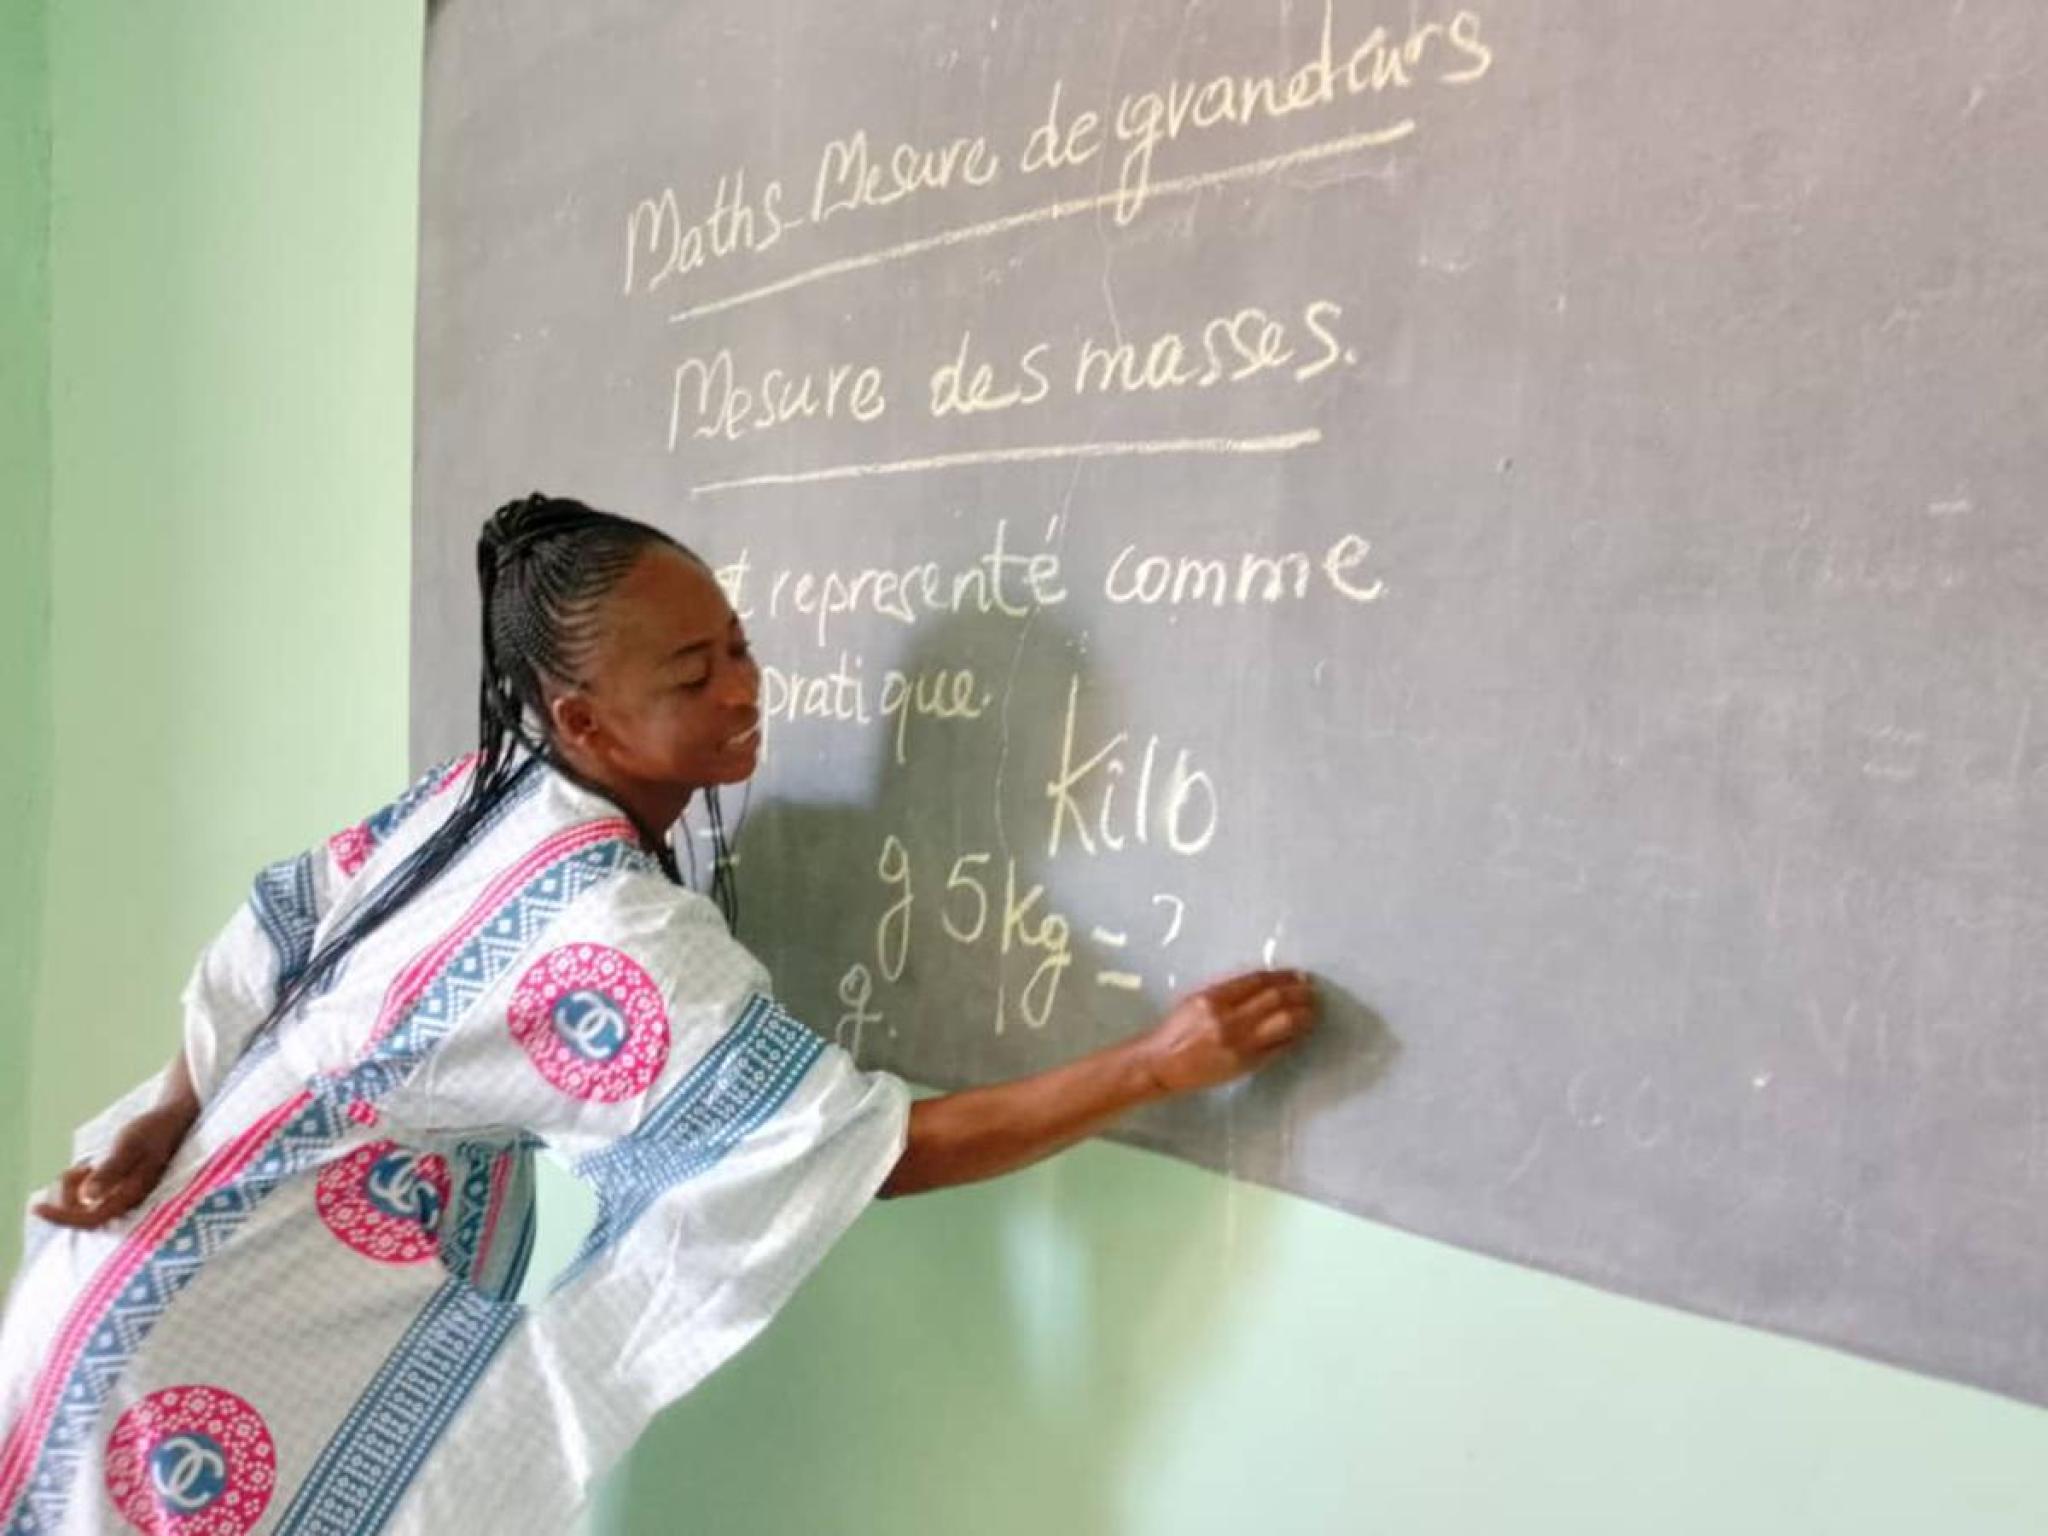 Maths-Mesure de grandeurs
Mesure des masses.
représenté comme
pratique.
Kilo
g 5Kg = ?
g.